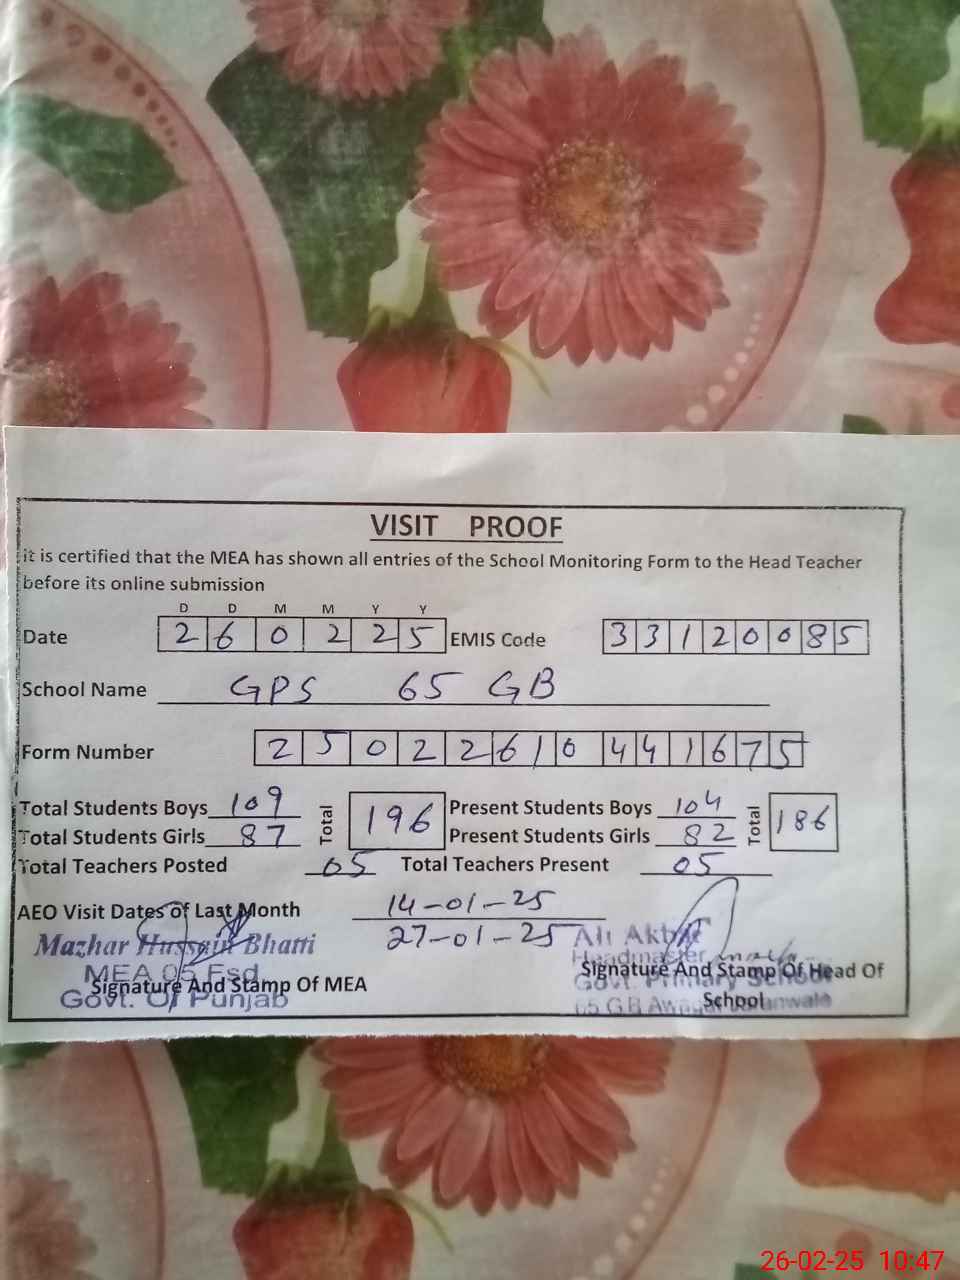 VISIT PROOF
it is certified that the MEA has shown all entries of the School Monitoring Form to the Head Teacher
before its online submission
D D M M Y Y
Date 2 6 0 2 2 5 EMIS Code 3 3 1 2 0 0 8 5
School Name GPS 65 GB
Form Number 2 5 0 2 2 6 1 0 4 4 1 6 7 5
Total Students Boys 109 Total 196 Present Students Boys 104 Total 186
Total Students Girls 87 Present Students Girls 82
Total Teachers Posted 05 Total Teachers Present 05
AEO Visit Dates of Last Month 14-01-25
27-01-25
Mazhar Hussain Bhatti
MEA 05 Fsd
Govt. Of Punjab
Signature And Stamp Of MEA
Ali Akbar
Headmaster
Govt. Primary School
65 G.B
Signature And Stamp Of Head Of
School
26-02-25 10:47